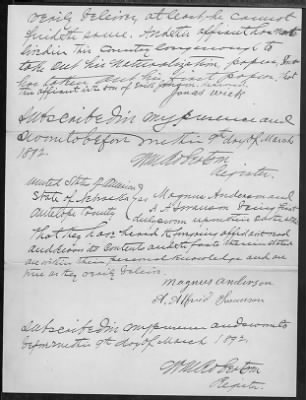 verily believe, at least he cannot
find the same. And this affiant has not
lived in this Country long enough to
take out his Naturalization papers, but
has taken out his first papers, but
this affiant is a son of
Jonas Wick
Subscribed in my presence and
sworn to before me this 9th day of March
1892.
Register.
United State of America
State of Nebraska ss Magnus Anderson and
Antelope County A. A. Swanson being first
duly sworn upon their oaths say
That they have heard the foregoing affidavit read
and know its contents and the facts therein stated
are within their personal knowledge and are
true as they verily believe.
Magnus Anderson
A. Alfred Swanson
Subscribed in my presence and sworn to
before me this 9th day of March 1892.
Register